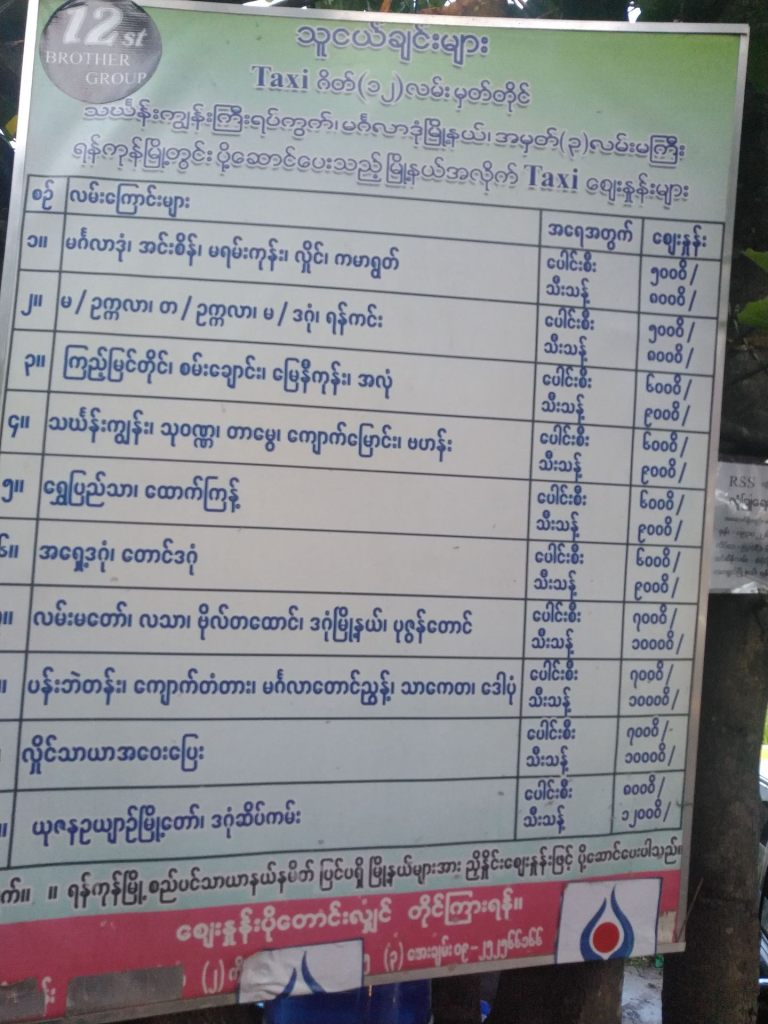 12 st
BROTHER
GROUP
သူငယ်ချင်းများ
Taxi ဂိတ်(၁၂)လမ်းမှတ်တိုင်
သင်္ဃန်းကျွန်းကြီးရပ်ကွက်၊ မင်္ဂလာဒုံမြို့နယ်၊ အမှတ်(၃)လမ်းမကြီး
ရန်ကုန်မြို့တွင်း ပို့ဆောင်ပေးသည့် မြို့နယ်အလိုက် Taxi ဈေးနှုန်းများ
စဉ် လမ်းကြောင်းများ အရေအတွက် ဈေးနှုန်း
၁။ မင်္ဂလာဒုံ၊ အင်းစိန်၊ မရမ်းကုန်း၊ လှိုင်၊ ကမာရွတ် ပေါင်းစီး ၅၀၀ဝိ/
သီးသန့် ၈၀၀ဝိ/
၂။ မ/ဥက္ကလာ၊ တ/ဥက္ကလာ၊ မ/ဒဂုံ၊ ရန်ကင်း ပေါင်းစီး ၅၀၀ဝိ/
သီးသန့် ၈၀၀ဝိ/
၃။ ကြည့်မြင်တိုင်၊ စမ်းချောင်း၊ မြေနီကုန်း၊ အလုံ ပေါင်းစီး ၆၀၀ဝိ/
သီးသန့် ၉၀၀ဝိ/
၄။ သင်္ဃန်းကျွန်း၊ သုဝဏ္ဏ၊ တာမွေ၊ ကျောက်မြောင်း၊ ဗဟန်း ပေါင်းစီး ၆၀၀ဝိ/
သီးသန့် ၉၀၀ဝိ/
၅။ ရွှေပြည်သာ၊ ထောက်ကြန့် ပေါင်းစီး ၆၀၀ဝိ/
သီးသန့် ၉၀၀ဝိ/
၆။ အရှေ့ဒဂုံ၊ တောင်ဒဂုံ ပေါင်းစီး ၆၀၀ဝိ/
သီးသန့် ၉၀၀ဝိ/
။ လမ်းမတော်၊ လသာ၊ ဗိုလ်တထောင်၊ ဒဂုံမြို့နယ်၊ ပုဇွန်တောင် ပေါင်းစီး ၇၀၀ဝိ/
သီးသန့် ၁၀၀၀ဝိ/
။ ပန်းဘဲတန်း၊ ကျောက်တံတား၊ မင်္ဂလာတောင်ညွန့်၊ သာကေတ၊ ဒေါပုံ ပေါင်းစီး ၇၀၀ဝိ/
သီးသန့် ၁၀၀၀ဝိ/
လှိုင်သာယာအဝေးပြေး ပေါင်းစီး ၇၀၀ဝိ/-
သီးသန့် ၁၀၀၀ဝိ/
။ ယုဇနဥယျာဉ်မြို့တော်၊ ဒဂုံဆိပ်ကမ်း ပေါင်းစီး ၈၀၀ဝိ/
သီးသန့် ၁၂၀၀ဝိ/
က်။ ။ ရန်ကုန်မြို့ စည်ပင်သာယာနယ်နမိတ် ပြင်ပရှိ မြို့နယ်များအား ညှိနှိုင်းဈေးနှုန်းဖြင့် ပို့ဆောင်ပေးပါသည်။
ဈေးနှုန်းပိုတောင်းလျှင် တိုင်ကြားရန်။
(၂) (၃) အေးချမ်း ၀၉-၂၅၂၅၆၆၁၆၆
RSS